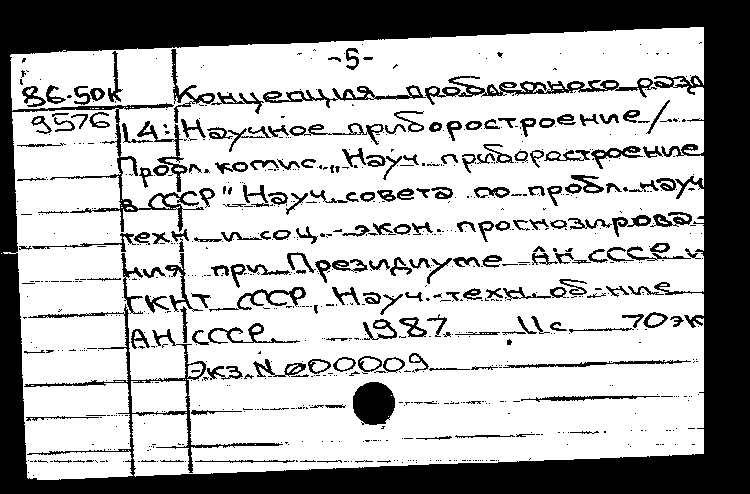 -5-
86-50к Концепция проблемного разд
9576 1.4: Научное приборостроение/
Пробл. комис. „Науч. приборостроение
в СССР" Науч. совета по пробл. науч
техн. и соц.-экон. прогнозирова-
ния при Президиуме АН СССР и
ГКНТ СССР, Науч.-техн. об-ние
АН СССР. 1987. 11 с. 70 эк
Экз. N 000009